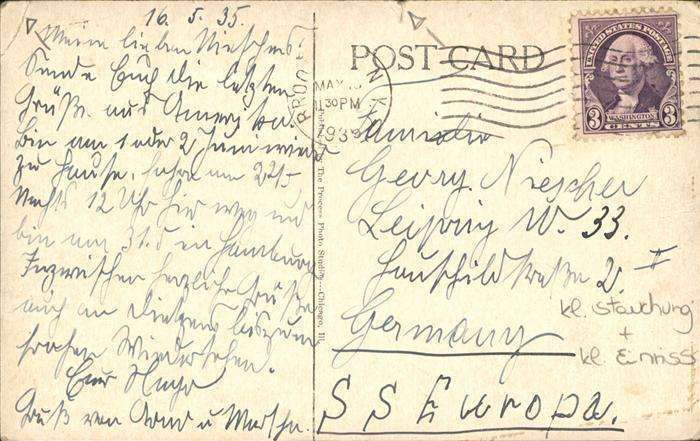 16. 5. 35.
Meine lieben
Sende Euch die letzten
Grüße aus Amerika.
Bin am 1 oder 2 Juni wieder
zu Hause, fahre am 22/5
Nachts 12 Uhr hier weg und
bin am 31.5 in Hamburg
Inzwischen herzliche Grüße
auch an bis zum
frohen Wiedersehen.
Euer Hugo
Gruß von u
POST CARD
MAY
30 PM
1935
N.Y.
UNITED STATES POSTAGE
3 3
WASHINGTON
CENTS
The Process Photo Studio--Chicago, Ill.
Familie
Georg Niescher
Leipzig W. 33.
Hauschildstraße 2. II
Germany
S S Europa.
kl. Stauchung
+
kl. Einriss